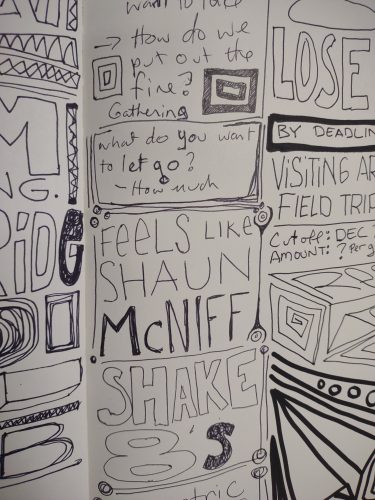 want to take
→ How do we
put out the
fire?
Gathering
what do you want
to let go?
- How much
FEELS LIKE
SHAUN
McNIFF
SHAKE
8's
M
NG.
RiDe
B
LOSE
BY DEADLIN
VISITING AR
FIELD TRIP
Cutoff: DEC ?
AMOUNT: ? Per g